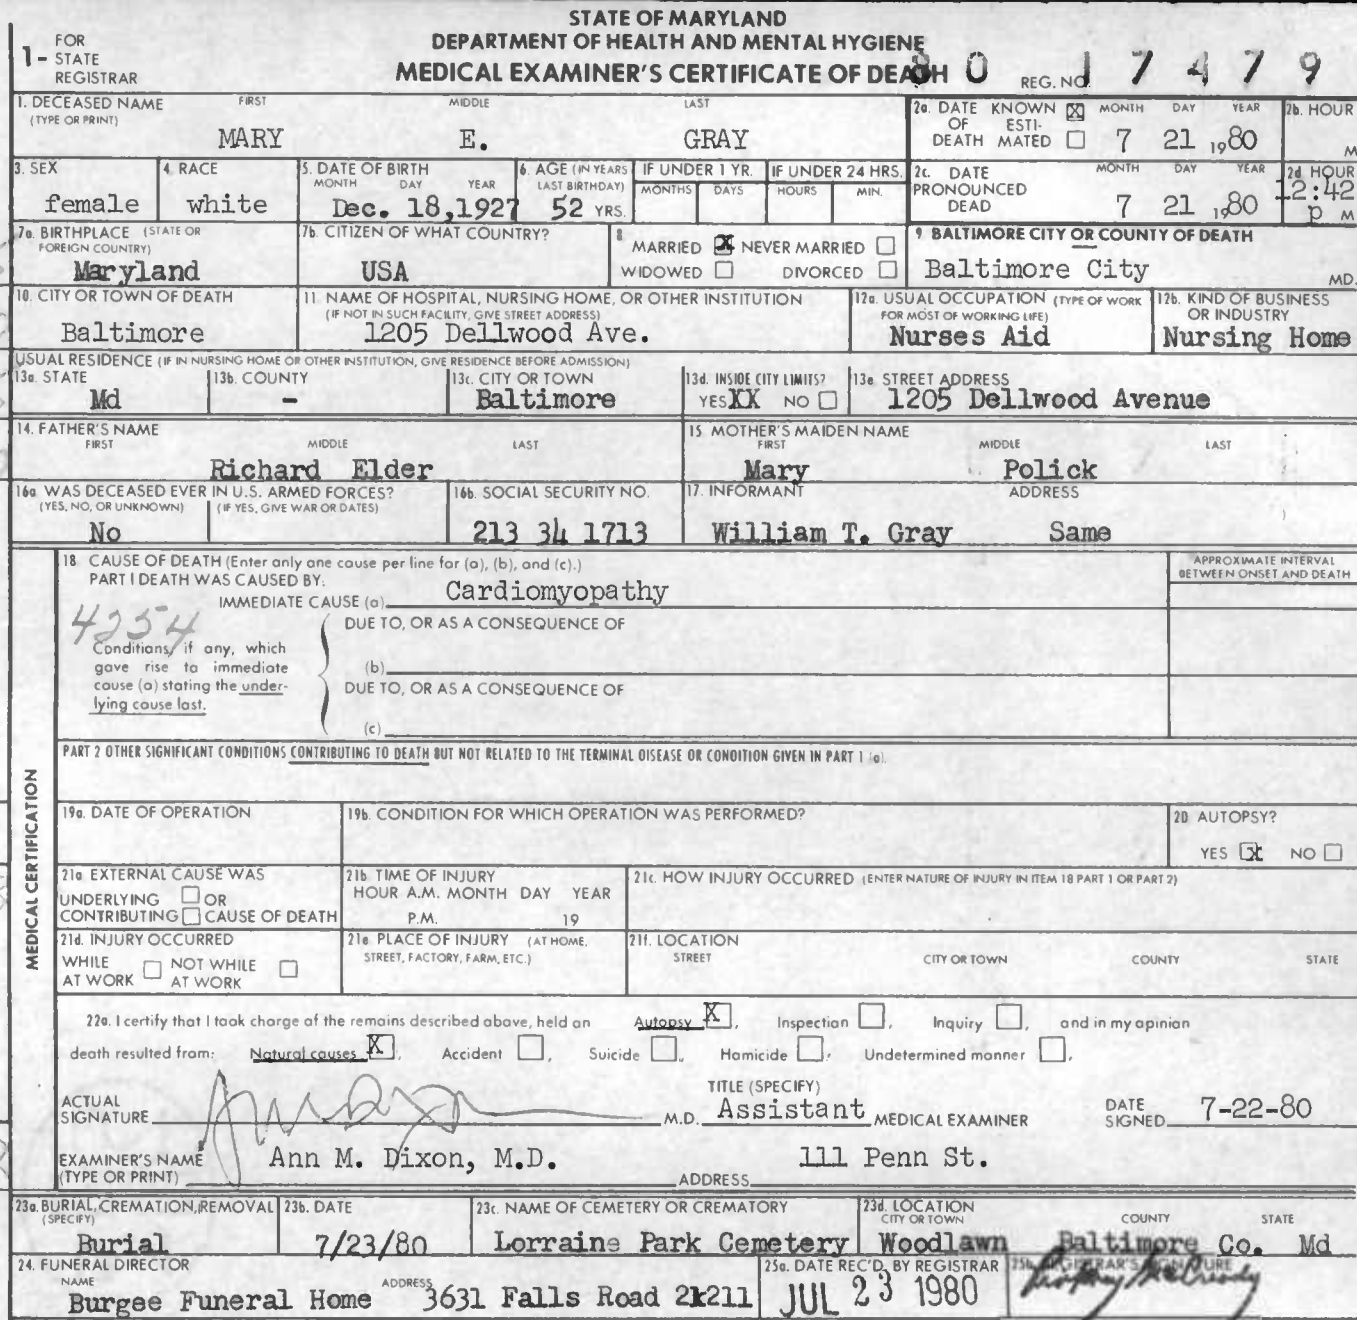 STATE OF MARYLAND
DEPARTMENT OF HEALTH AND MENTAL HYGIENE
MEDICAL EXAMINER'S CERTIFICATE OF DEATH
1- FOR STATE REGISTRAR
REG. NO. 80 17479
1. DECEASED NAME (TYPE OR PRINT) FIRST MIDDLE LAST
MARY E. GRAY
2a. DATE OF DEATH KNOWN X ESTIMATED MONTH DAY YEAR
7 21 1980
2b. HOUR M
3. SEX
female
4. RACE
white
5. DATE OF BIRTH MONTH DAY YEAR
Dec. 18,1927
6. AGE (IN YEARS LAST BIRTHDAY)
52 YRS.
IF UNDER 1 YR. MONTHS DAYS
IF UNDER 24 HRS. HOURS MIN.
2c. DATE PRONOUNCED DEAD MONTH DAY YEAR
7 21 1980
2d HOUR
12:42 p M
7a. BIRTHPLACE (STATE OR FOREIGN COUNTRY)
Maryland
7b. CITIZEN OF WHAT COUNTRY?
USA
8 MARRIED X NEVER MARRIED
WIDOWED DIVORCED
9. BALTIMORE CITY OR COUNTY OF DEATH
Baltimore City MD.
10. CITY OR TOWN OF DEATH
Baltimore
11. NAME OF HOSPITAL, NURSING HOME, OR OTHER INSTITUTION
(IF NOT IN SUCH FACILITY, GIVE STREET ADDRESS)
1205 Dellwood Ave.
12a. USUAL OCCUPATION (TYPE OF WORK FOR MOST OF WORKING LIFE)
Nurses Aid
12b. KIND OF BUSINESS OR INDUSTRY
Nursing Home
USUAL RESIDENCE (IF IN NURSING HOME OR OTHER INSTITUTION, GIVE RESIDENCE BEFORE ADMISSION)
13a. STATE
Md
13b. COUNTY
-
13c. CITY OR TOWN
Baltimore
13d. INSIDE CITY LIMITS?
YES XX NO
13e STREET ADDRESS
1205 Dellwood Avenue
14. FATHER'S NAME FIRST MIDDLE LAST
Richard Elder
15. MOTHER'S MAIDEN NAME FIRST MIDDLE LAST
Mary Polick
16a. WAS DECEASED EVER IN U.S. ARMED FORCES?
(YES, NO, OR UNKNOWN) (IF YES, GIVE WAR OR DATES)
No
16b. SOCIAL SECURITY NO.
213 34 1713
17. INFORMANT ADDRESS
William T. Gray Same
MEDICAL CERTIFICATION
18 CAUSE OF DEATH (Enter only one cause per line for (a), (b), and (c).)
PART I DEATH WAS CAUSED BY:
IMMEDIATE CAUSE (a) Cardiomyopathy
APPROXIMATE INTERVAL BETWEEN ONSET AND DEATH
4254
Conditions, if any, which gave rise to immediate cause (a) stating the underlying cause last.
DUE TO, OR AS A CONSEQUENCE OF
(b)
DUE TO, OR AS A CONSEQUENCE OF
(c)
PART 2 OTHER SIGNIFICANT CONDITIONS CONTRIBUTING TO DEATH BUT NOT RELATED TO THE TERMINAL DISEASE OR CONDITION GIVEN IN PART 1 (a).
19a. DATE OF OPERATION
19b. CONDITION FOR WHICH OPERATION WAS PERFORMED?
20 AUTOPSY?
YES X NO
21a EXTERNAL CAUSE WAS
UNDERLYING OR
CONTRIBUTING CAUSE OF DEATH
21b TIME OF INJURY
HOUR A.M. MONTH DAY YEAR
P.M. 19
21c. HOW INJURY OCCURRED (ENTER NATURE OF INJURY IN ITEM 18 PART 1 OR PART 2)
21d. INJURY OCCURRED
WHILE AT WORK NOT WHILE AT WORK
21e PLACE OF INJURY (AT HOME, STREET, FACTORY, FARM, ETC.)
21f. LOCATION
STREET CITY OR TOWN COUNTY STATE
22a. I certify that I took charge of the remains described above, held an Autopsy X, Inspection, Inquiry, and in my opinion
death resulted from: Natural causes X, Accident, Suicide, Homicide, Undetermined manner,
ACTUAL SIGNATURE M.D.
TITLE (SPECIFY)
Assistant MEDICAL EXAMINER
DATE SIGNED 7-22-80
EXAMINER'S NAME (TYPE OR PRINT) Ann M. Dixon, M.D.
ADDRESS 111 Penn St.
23a. BURIAL, CREMATION, REMOVAL (SPECIFY)
Burial
23b. DATE
7/23/80
23c. NAME OF CEMETERY OR CREMATORY
Lorraine Park Cemetery
23d. LOCATION CITY OR TOWN COUNTY STATE
Woodlawn Baltimore Co. Md
24. FUNERAL DIRECTOR
NAME ADDRESS
Burgee Funeral Home 3631 Falls Road 21211
25a. DATE REC'D. BY REGISTRAR
JUL 23 1980
25b. REGISTRAR'S SIGNATURE